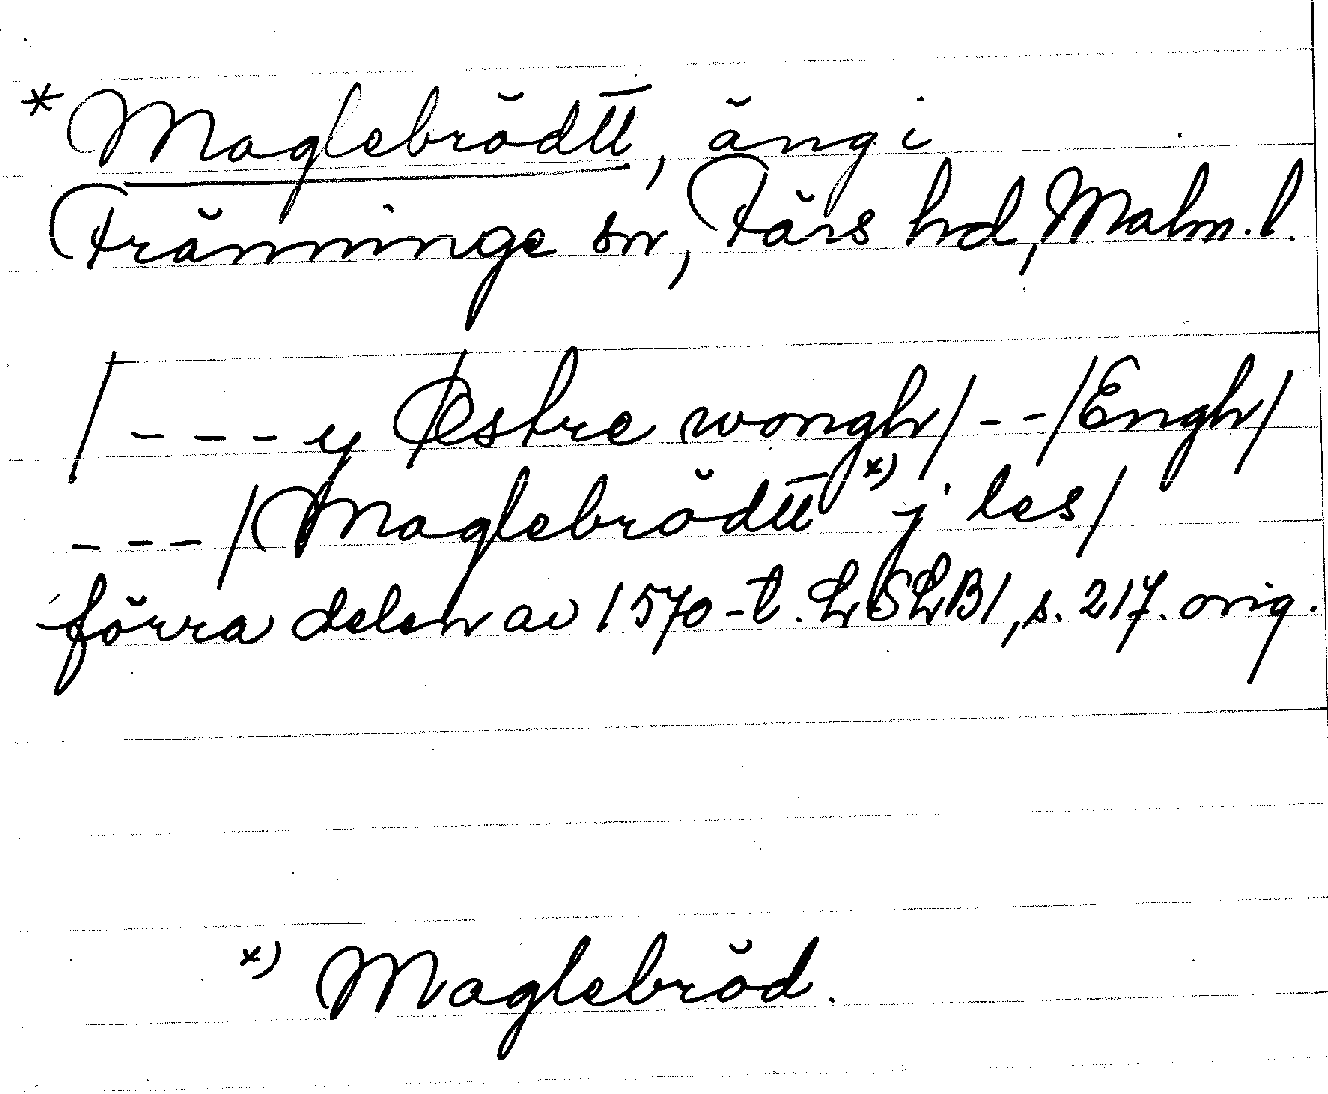 *Maglebrödtt, äng i
Tranninge sn, Färs hd, Malm. l.
/ - - - y Østre wongh/ - - /Engh/
- - - /Maglebrödtt *) j les/
förra delen av 1570-t. LSLB1, s. 217. orig.
*) Maglebröd.